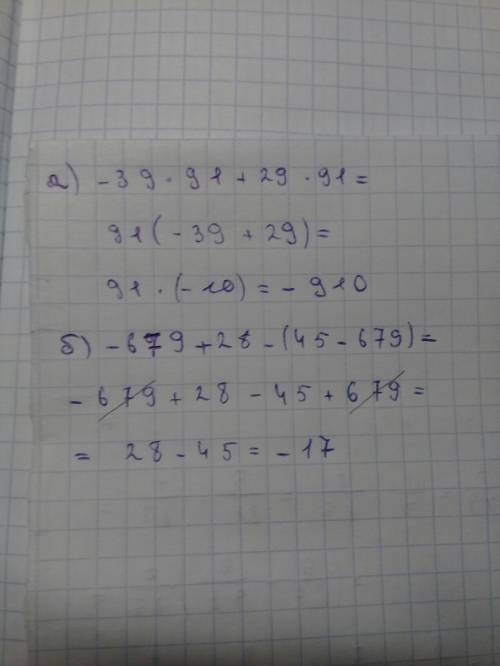 а) -39 · 91 + 29 · 91 =
91(-39 + 29) =
91 · (-10) = - 910
б) -679 + 28 - (45 - 679) =
- 679 + 28 - 45 + 679 =
= 28 - 45 = - 17